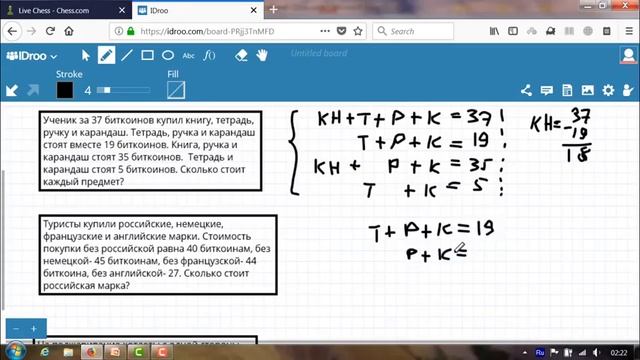 Live Chess - Chess.com
IDroo
https://idroo.com/board-PRjj3TnMFD
IDroo
Untitled board
Stroke
Fill
4
Ученик за 37 биткоинов купил книгу, тетрадь,
ручку и карандаш. Тетрадь, ручка и карандаш
стоят вместе 19 биткоинов. Книга, ручка и
карандаш стоят 35 биткоинов. Тетрадь и
карандаш стоят 5 биткоинов. Сколько стоит
каждый предмет?
КН+Т+Р+К=37
Т+Р+К=19
КН+ Р+К=35
Т +К=5
КН= 37
-19
18
Туристы купили российские, немецкие,
французские и английские марки. Стоимость
покупки без российской равна 40 биткоинам, без
немецкой- 45 биткоинам, без французской- 44
биткоина, без английской- 27. Сколько стоит
российская марка?
Т+Р+К=19
Р+К=
Ru
02:22